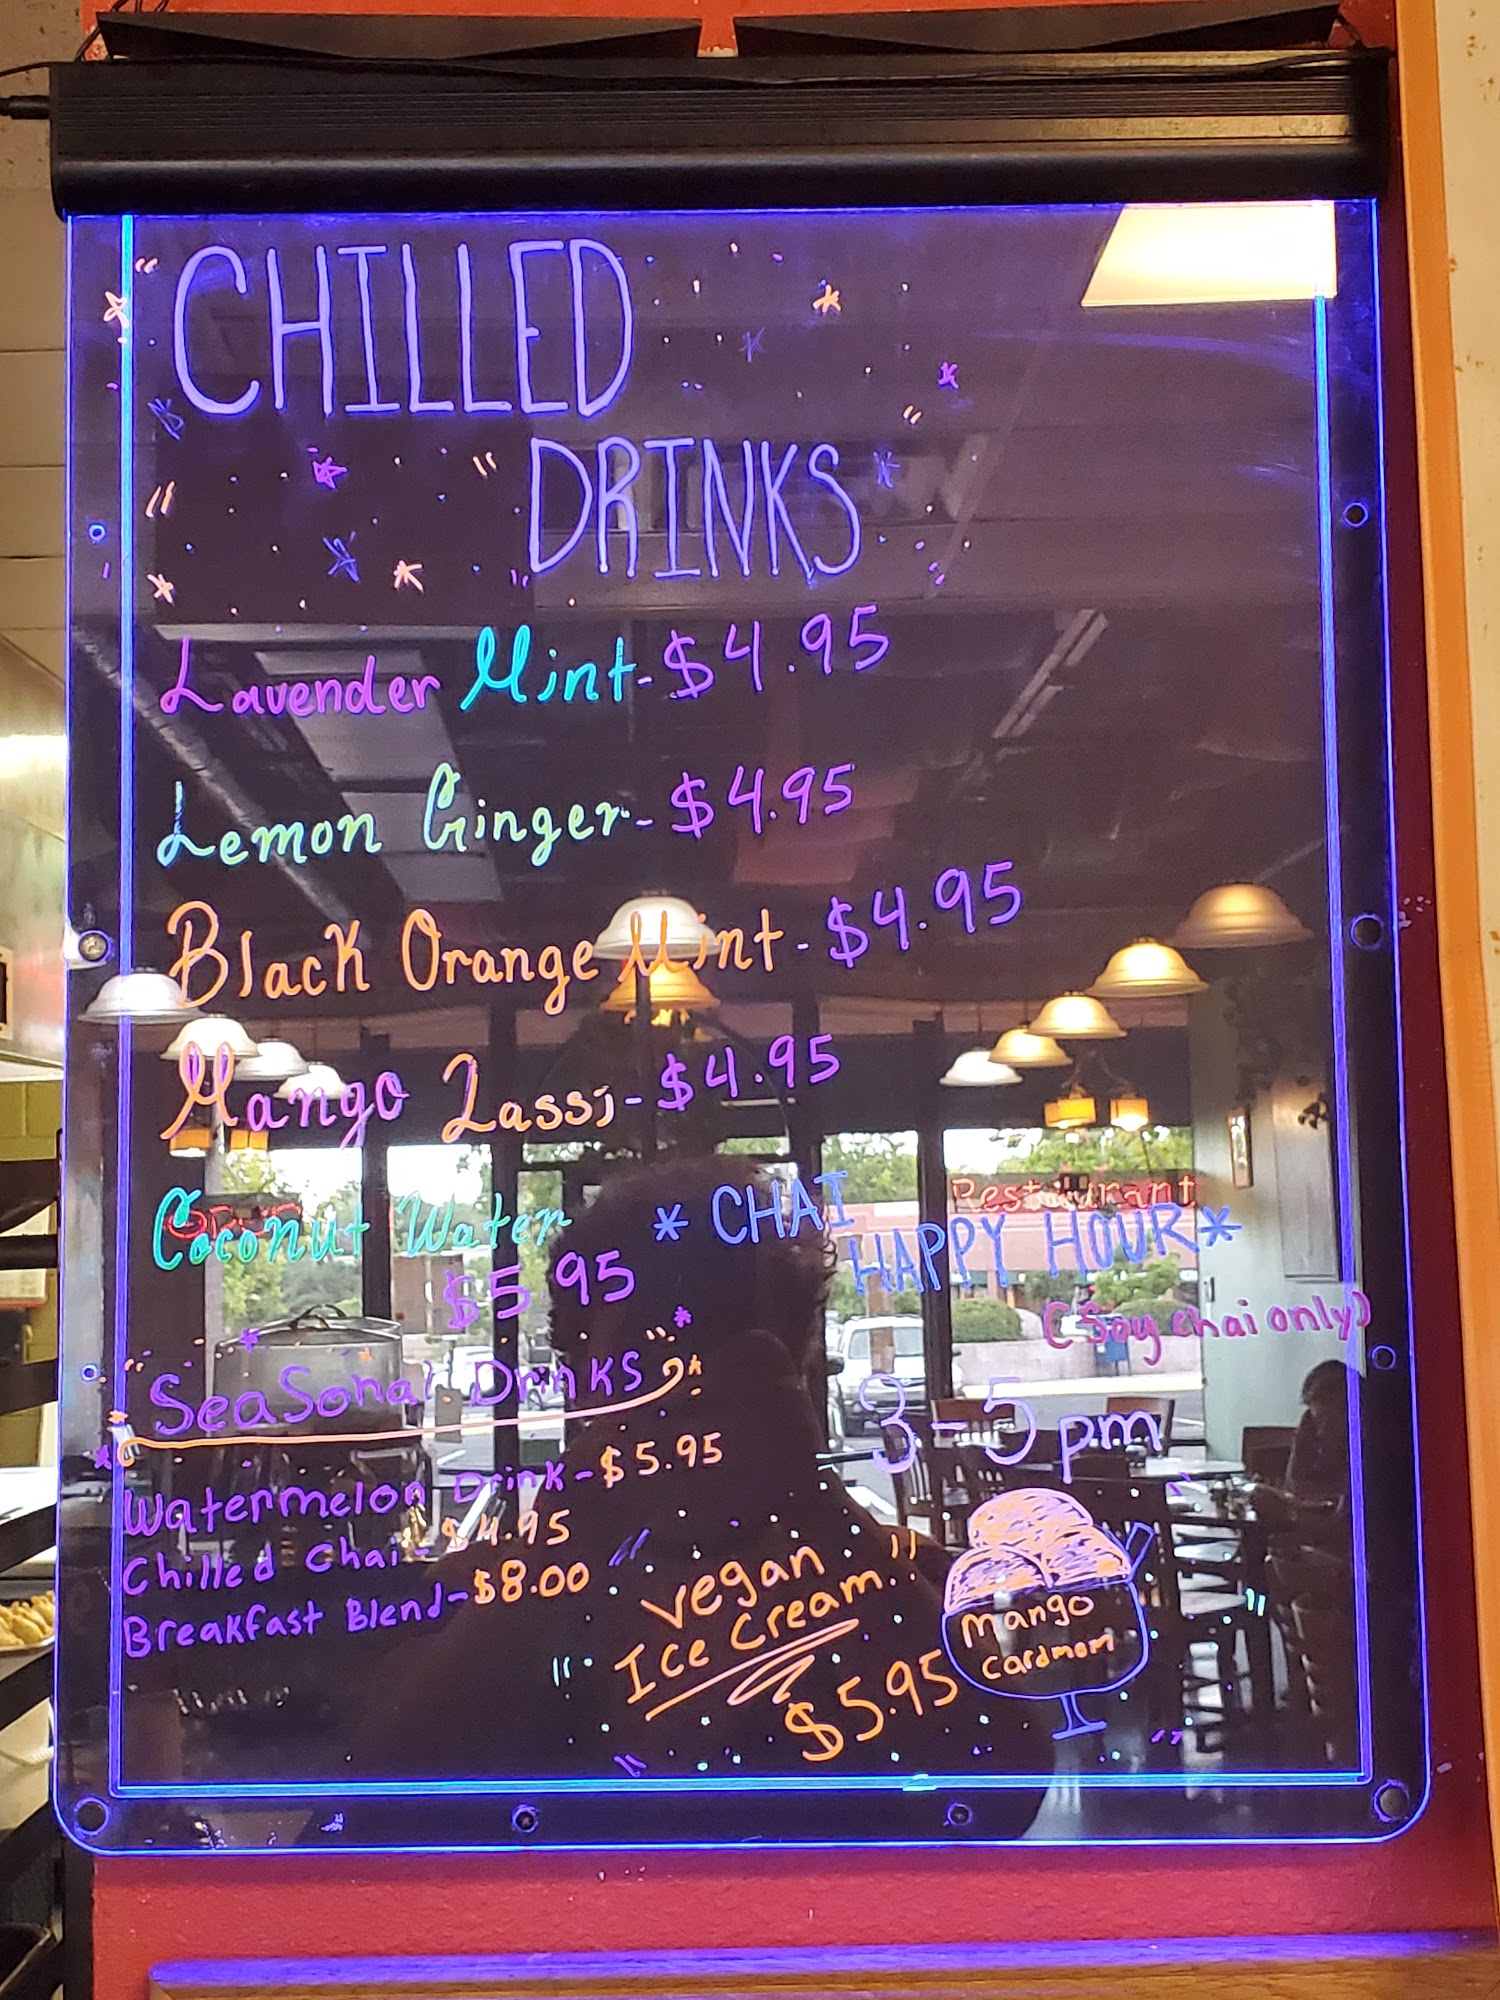 CHILLED
DRINKS
Lavender Mint - $4.95
Lemon Ginger - $4.95
Black Orange Mint - $4.95
Mango Lassi - $4.95
Coconut Water
$5.95
* CHAI
HAPPY HOUR *
(Soy chai only)
3-5pm
Seasonal Drinks
Watermelon Drink - $5.95
Chilled Chai - $4.95
Breakfast Blend - $8.00
Vegan
Ice Cream
$5.95
Mango
Cardmom
Restaurant